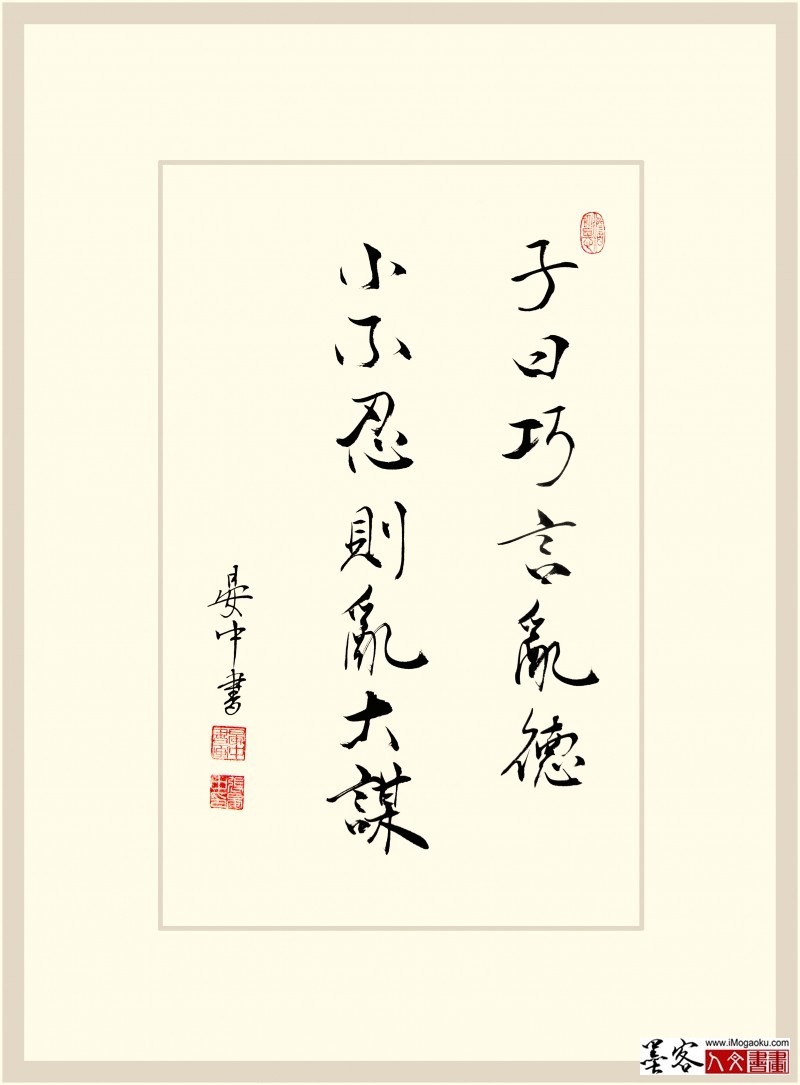 子曰巧言亂德
小不忍則亂大謀
晏中書
墨客
www.iMogaoku.com
人文書畫